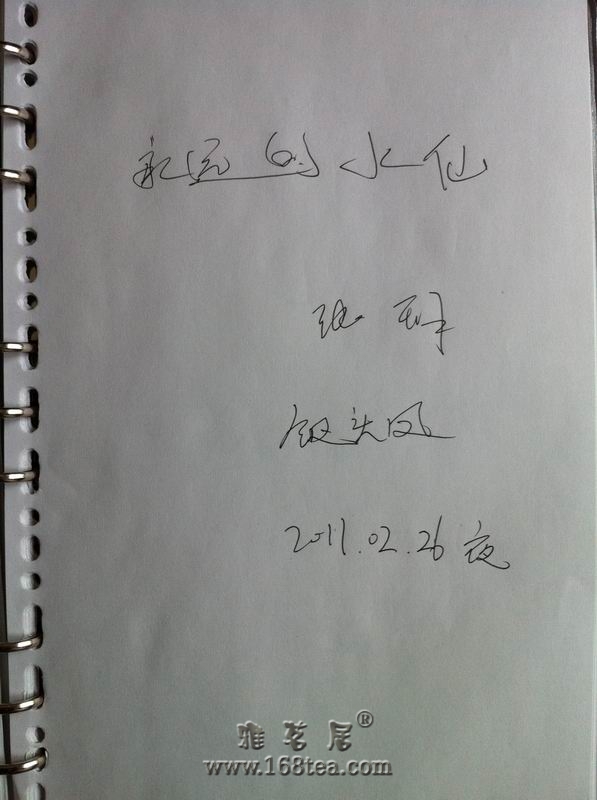 永远的水仙
张
钗头凤
2011.02.26 夜
雅茗居®
www.168tea.com